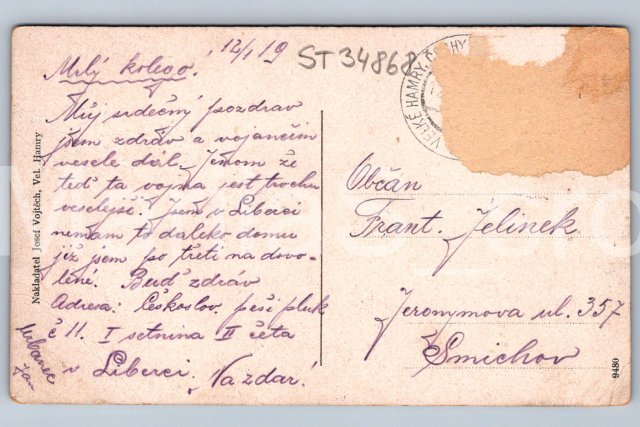 12/I 19
ST 34868
Milý kolego!
Můj srdečný pozdrav
jsem zdráv a vojančím
vesele dál. Jenom že
teď ta vojna jest trochu
veselejší. Jsem v Liberci
nemám to daleko domu
již jsem po třetí na dovo-
lené. Buď zdráv
Adresa: Českoslov. pěší pluk
č 11. I setnina II četa
v Liberci. Nazdar!
Urbanec
Jan
Nakladatel Josef Vojtěch, Vel. Hamry
VELKÉ HAMRY, ČECHY
Občan
Frant. Jelinek
Jeronymova ul. 357
Smichov
9480